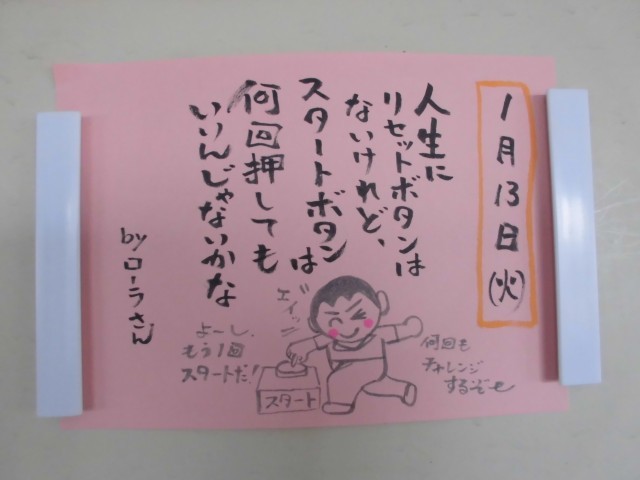 1月13日(火)
人生に
リセットボタンは
ないけれど、
スタートボタンは
何回押しても
いいんじゃないかな
byローラさん
エイッ!!
よーし、
もう1回
スタートだ!
スタート
何回も
チャレンジ
するぞーせ